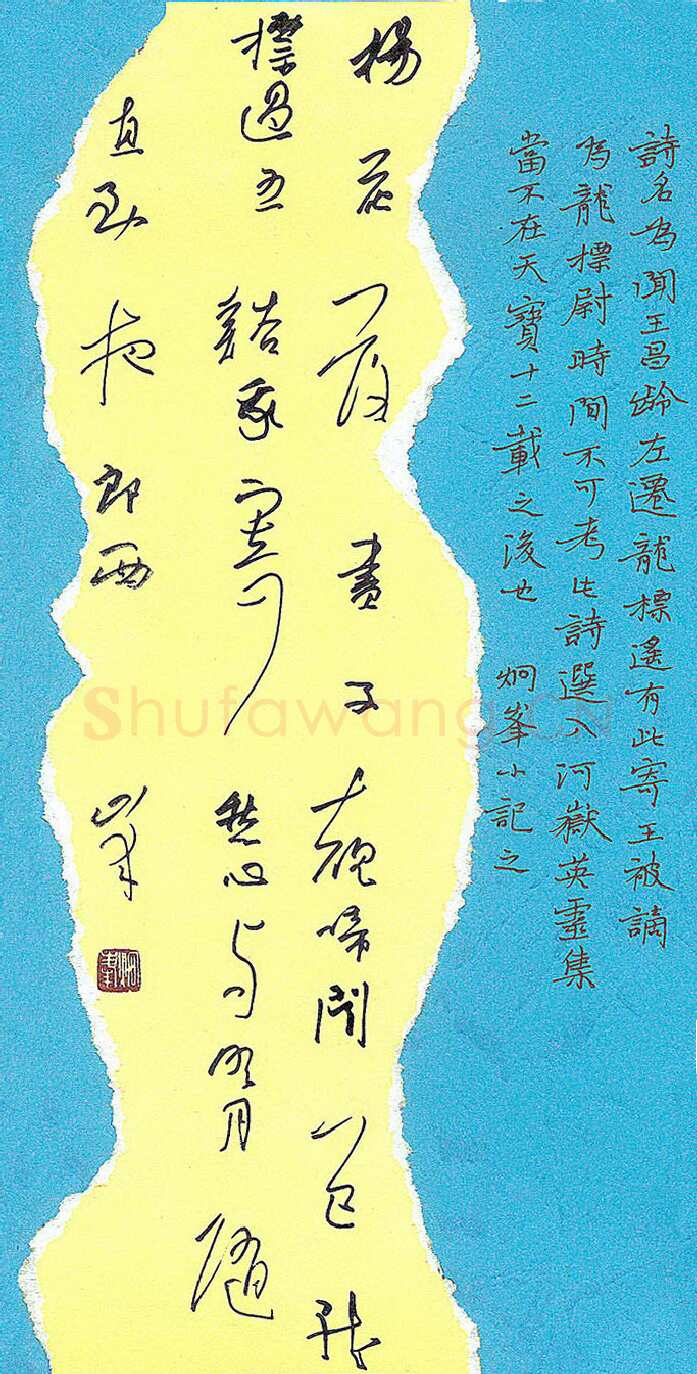 詩名為聞王昌齡左遷龍標遙有此寄王被謫
為龍標尉時間不可考此詩選入河嶽英靈集
當不在天寶十二載之後也 炯峯小記之
楊花落盡子規啼聞道龍
標過五谿我寄愁心与明月隨
直到夜郎西 峯
Shufawang.CN